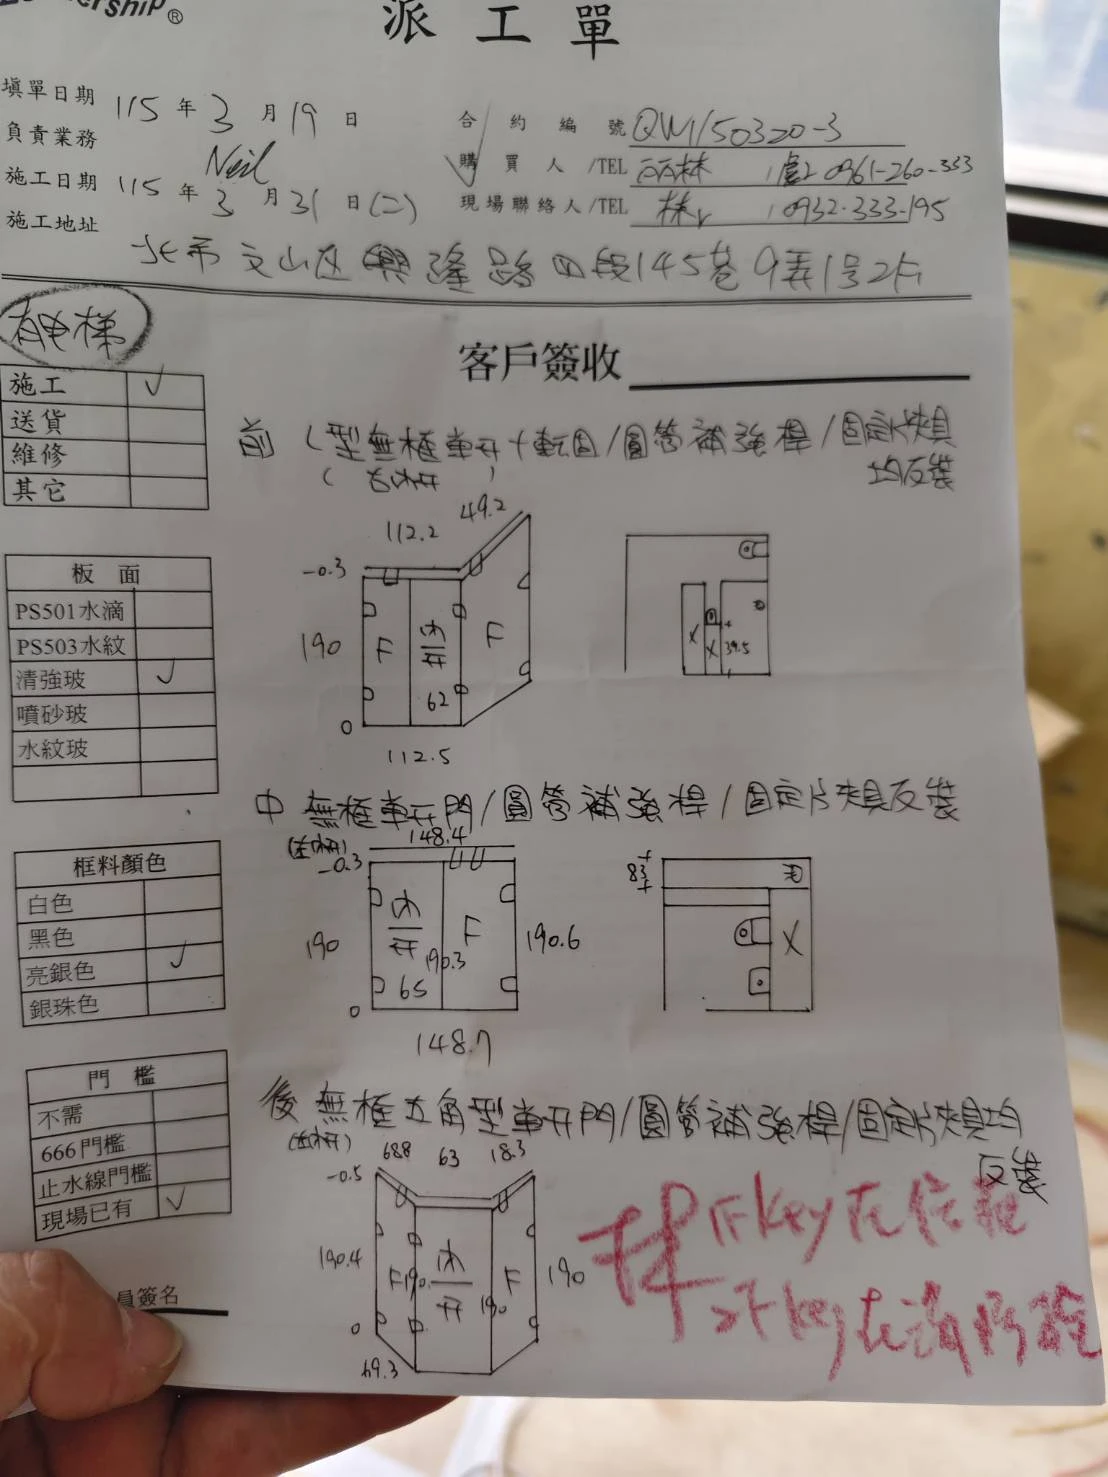 ership®
派工單
填單日期 115年3月19日
合約編號 QW1150320-3
負責業務 Neil
購買人/TEL 0961-260-333
施工日期 115年3月31日(二)
現場聯絡人/TEL 林 0932-333-195
施工地址
北市文山區興隆路四段145巷9弄1号2F
有电梯
客戶簽收
施工 ✓
送貨
維修
其它
前 L型無框單开+転固/圓管補強桿/固定片夾具
(右內开) 均反裝
板面
PS501水滴
PS503水紋
清強玻 ✓
噴砂玻
水紋玻
112.2 49.2
-0.3
190 F 內开 F
62
0
112.5
X X 39.5
中 無框單开門/圓管補強桿/固定片夾具反裝
(左內开) 148.4
-0.3
190 內开 F 190.6
190.3
65
0
148.7
83
X
框料顏色
白色
黑色
亮銀色 ✓
銀珠色
門檻
不需
666門檻
止水線門檻
現場已有 ✓
後 無框五角型單开門/圓管補強桿/固定片夾具均
(左內开) 反裝
68.8 63 18.3
-0.5
190.4 F 190 內开 190 F 190
0
69.3
員簽名